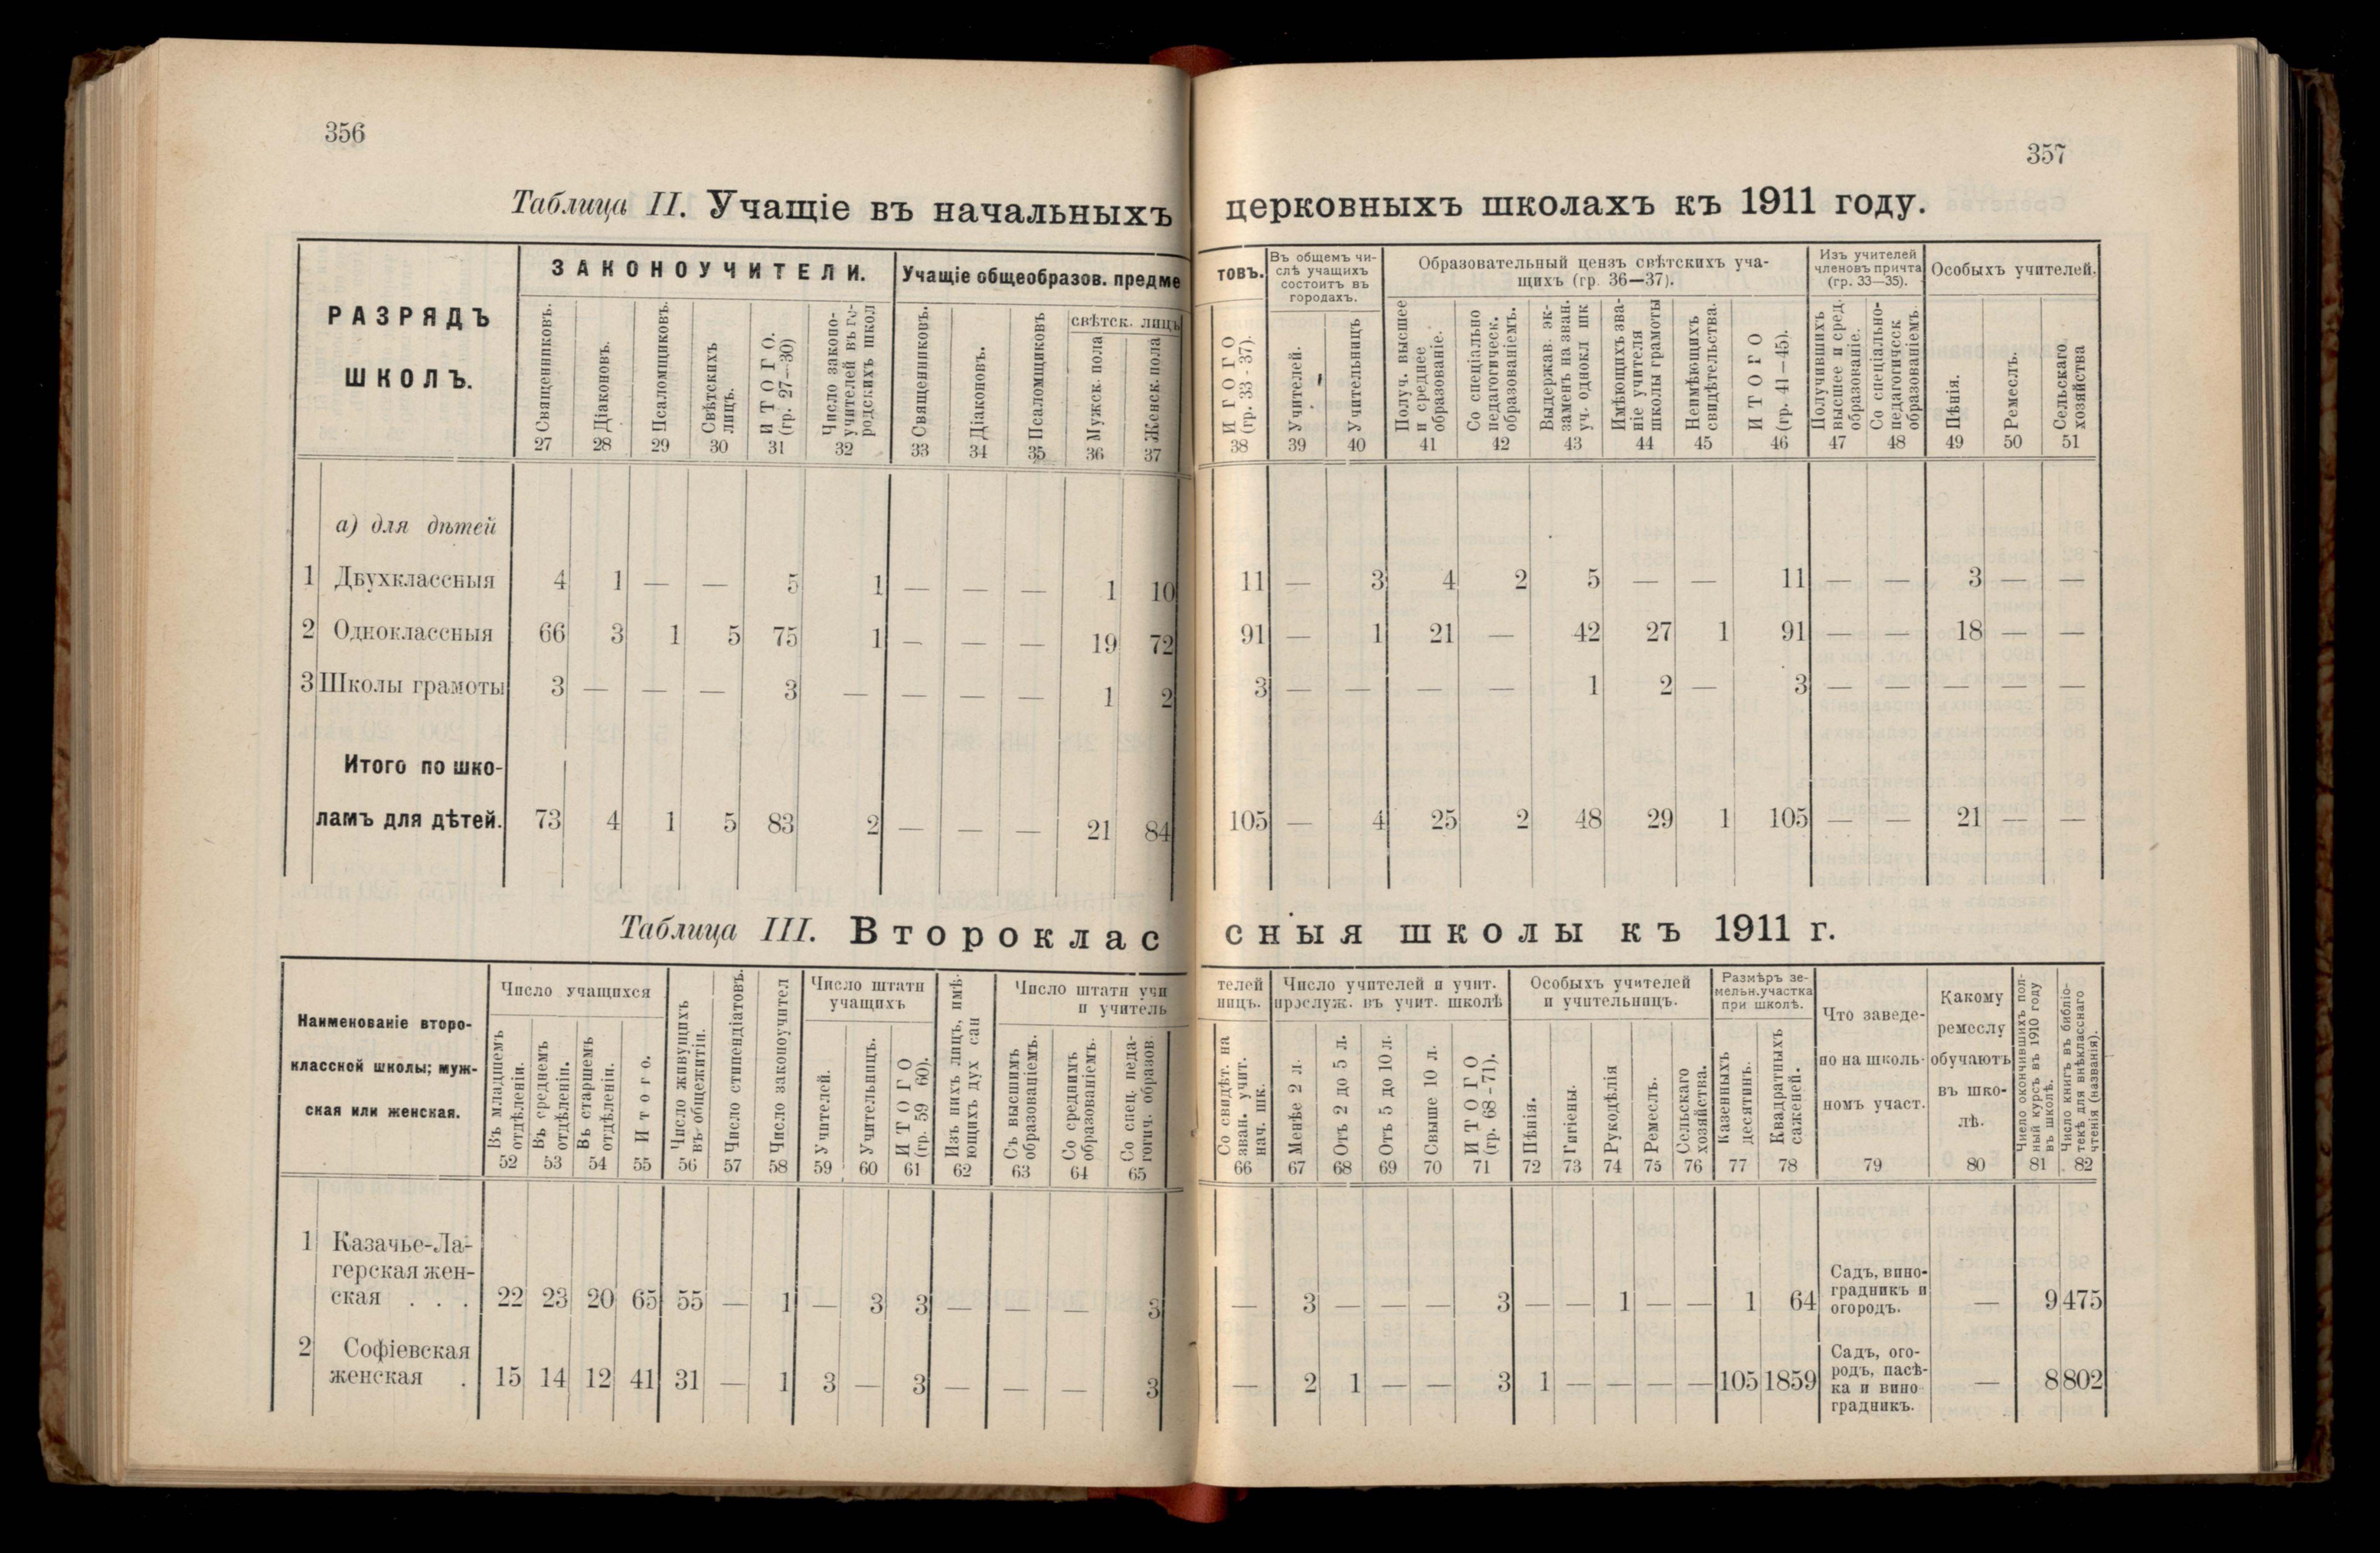 356
357
Таблица II. Учащіе въ начальныхъ церковныхъ школахъ къ 1911 году.
РАЗРЯДЪ
ШКОЛЪ.
ЗАКОНОУЧИТЕЛИ.
Учащіе общеобразов. предме
товъ.
Въ общемъ чи-
слѣ учащихъ
состоитъ въ
городахъ.
Образовательный цензъ свѣтскихъ уча-
щихъ (гр. 36—37).
Изъ учителей
членовъ причта
(гр. 33—35).
Особыхъ учителей.
свѣтск. лицъ
Священниковъ.
Діаконовъ.
Псаломщиковъ.
Свѣтскихъ
лицъ.
ИТОГО.
(гр. 27—30)
Число законо-
учителей въ го-
родскихъ школ
Священниковъ.
Діаконовъ.
Псаломщиковъ
Мужск. пола
Женск. пола
ИТОГО
(гр. 33-37).
Учителей.
Учительницъ
Получ. высшее
и среднее
образованіе.
Со спеціально
педагогическ.
образованіемъ.
Выдержав. эк-
заменъ на зван.
уч. однокл шк
Имѣющихъ зва-
ніе учителя
школы грамоты
Неимѣющихъ
свидѣтельства.
ИТОГО
(гр. 41—45).
Получившихъ
высшее и сред.
образованіе.
Со спеціально-
педагогическ
образованіемъ.
Пѣнія.
Ремеслъ.
Сельскаго
хозяйства
27 28 29 30 31 32 33 34 35 36 37 38 39 40 41 42 43 44 45 46 47 48 49 50 51
а) для дѣтей
1 Двухклассныя 4 1 — — 5 1 — — — 1 10 11 — 3 4 2 5 — — 11 — — 3 — —
2 Одноклассныя 66 3 1 5 75 1 — — — 19 72 91 — 1 21 — 42 27 1 91 — — 18 — —
3 Школы грамоты 3 — — — 3 — — — — 1 2 3 — — — — 1 2 — 3 — — — — —
Итого по шко-
ламъ для дѣтей. 73 4 1 5 83 2 — — — 21 84 105 — 4 25 2 48 29 1 105 — — 21 — —
Таблица III. Второклассныя школы къ 1911 г.
Наименованіе второ-
классной школы; муж-
ская или женская.
Число учащихся
Въ младшемъ
отдѣленіи.
Въ среднемъ
отдѣленіи.
Въ старшемъ
отдѣленіи.
Итого.
Число живущихъ
въ общежитіи.
Число стипендіатовъ.
Число законоучител
Число штатн
учащихъ
Учителей.
Учительницъ.
ИТОГО
(гр. 59 60).
Изъ нихъ лицъ, имѣ-
ющихъ дух сан
Число штатн учи
и учитель
Съ высшимъ
образованіемъ.
Со среднимъ
образованіемъ.
Со спец. педа-
гогич. образов.
телей
ницъ.
Со свидѣт. на
зван. учит.
нач. шк.
Число учителей и учит.
прослуж. въ учит. школѣ
Менѣе 2 л.
Отъ 2 до 5 л.
Отъ 5 до 10 л.
Свыше 10 л.
ИТОГО
(гр. 68-71).
Особыхъ учителей
и учительницъ.
Пѣнія.
Гигіены.
Рукодѣлія
Ремеслъ.
Сельскаго
хозяйства.
Размѣръ зе-
мельн.участка
при школѣ.
Казенныхъ
десятинъ.
Квадратныхъ
саженей.
Что заведе-
но на школь-
номъ участ.
Какому
ремеслу
обучаютъ
въ шко-
лѣ.
Число окончившихъ пол-
ный курсъ въ 1910 году
въ школѣ.
Число книгъ въ библіо-
текѣ для внѣкласснаго
чтенія (названія).
52 53 54 55 56 57 58 59 60 61 62 63 64 65 66 67 68 69 70 71 72 73 74 75 76 77 78 79 80 81 82
1 Казачье-Ла-
герская жен-
ская . . . 22 23 20 65 55 — 1 — 3 3 — — — 3 — 3 — — — 3 — — 1 — — 1 64
Садъ, вино-
градникъ и
огородъ.
— 9 475
2 Софіевская
женская . 15 14 12 41 31 — 1 3 — 3 — — — 3 — 2 1 — — 3 1 — — — — 105 1859
Садъ, ого-
родъ, пасѣ-
ка и вино
градникъ.
— 8 802